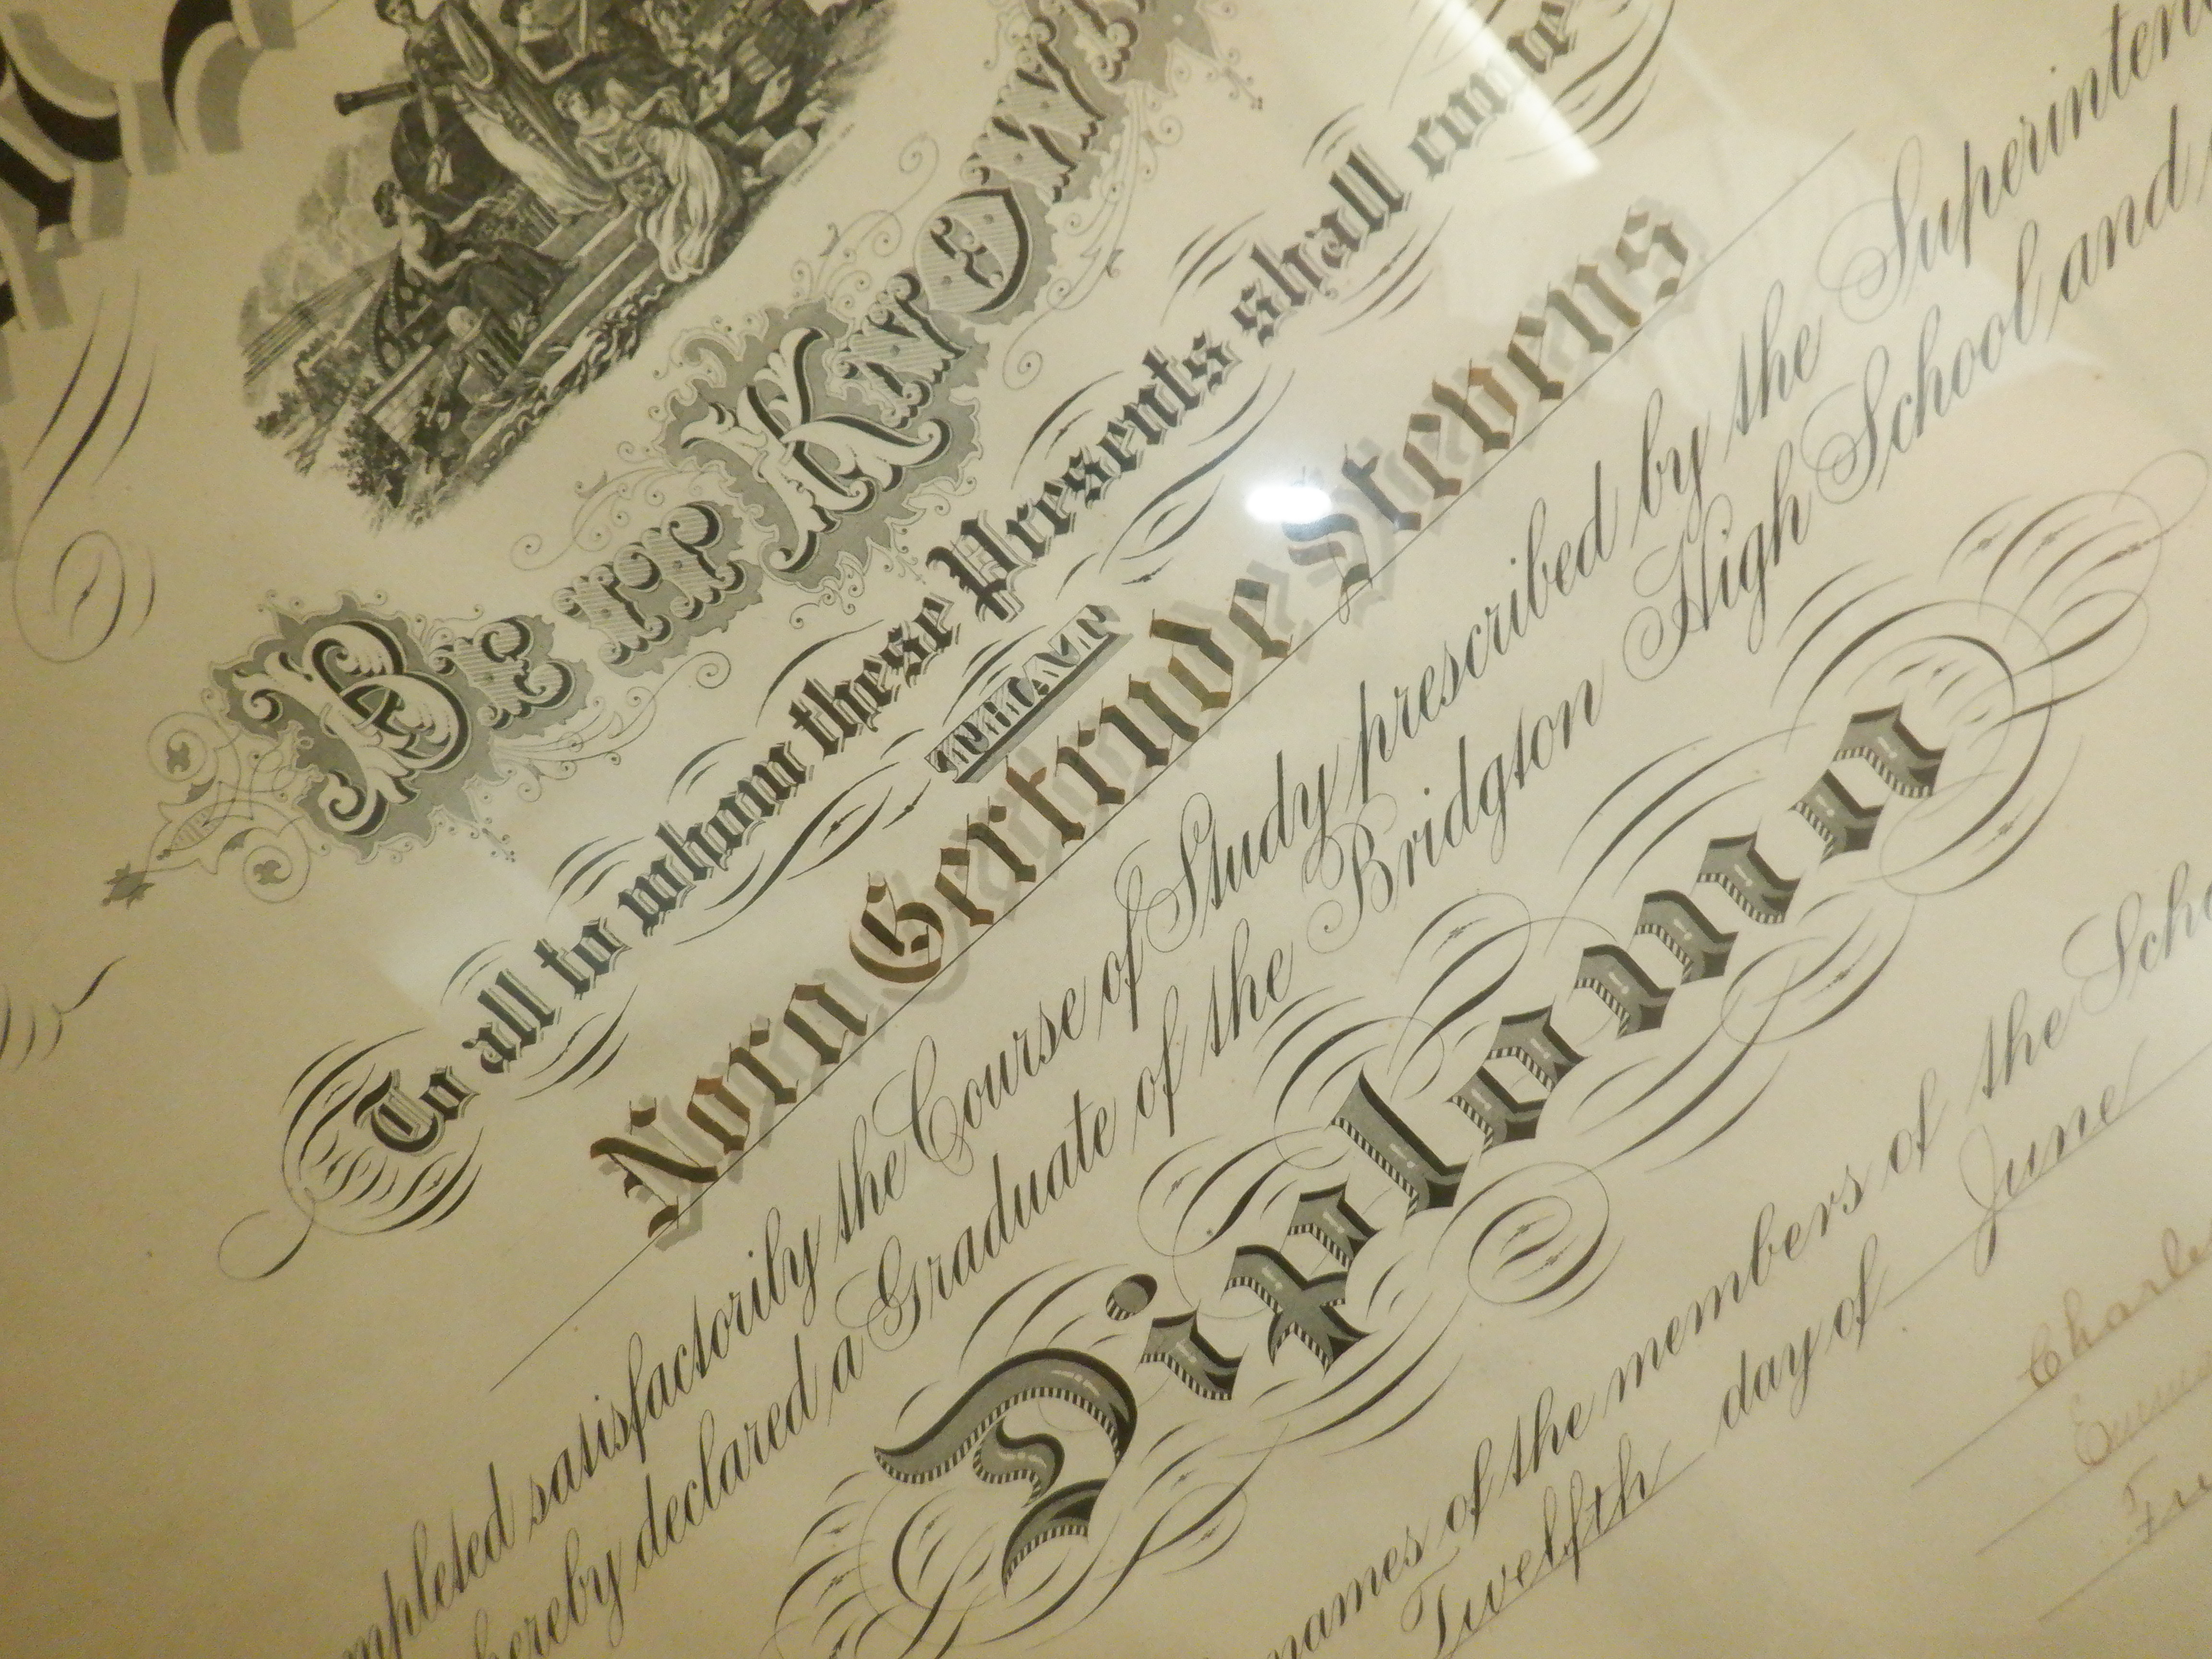 BE IT KNOWN
To all to whom these Presents shall come
THAT
Nora Gertrude Stevens
mpleted satisfactorily the Course of Study prescribed by the Superinten
hereby declared a Graduate of the Bridgton High School and
Diploma
names of the members of the Scho
Twelfth day of June
Charle